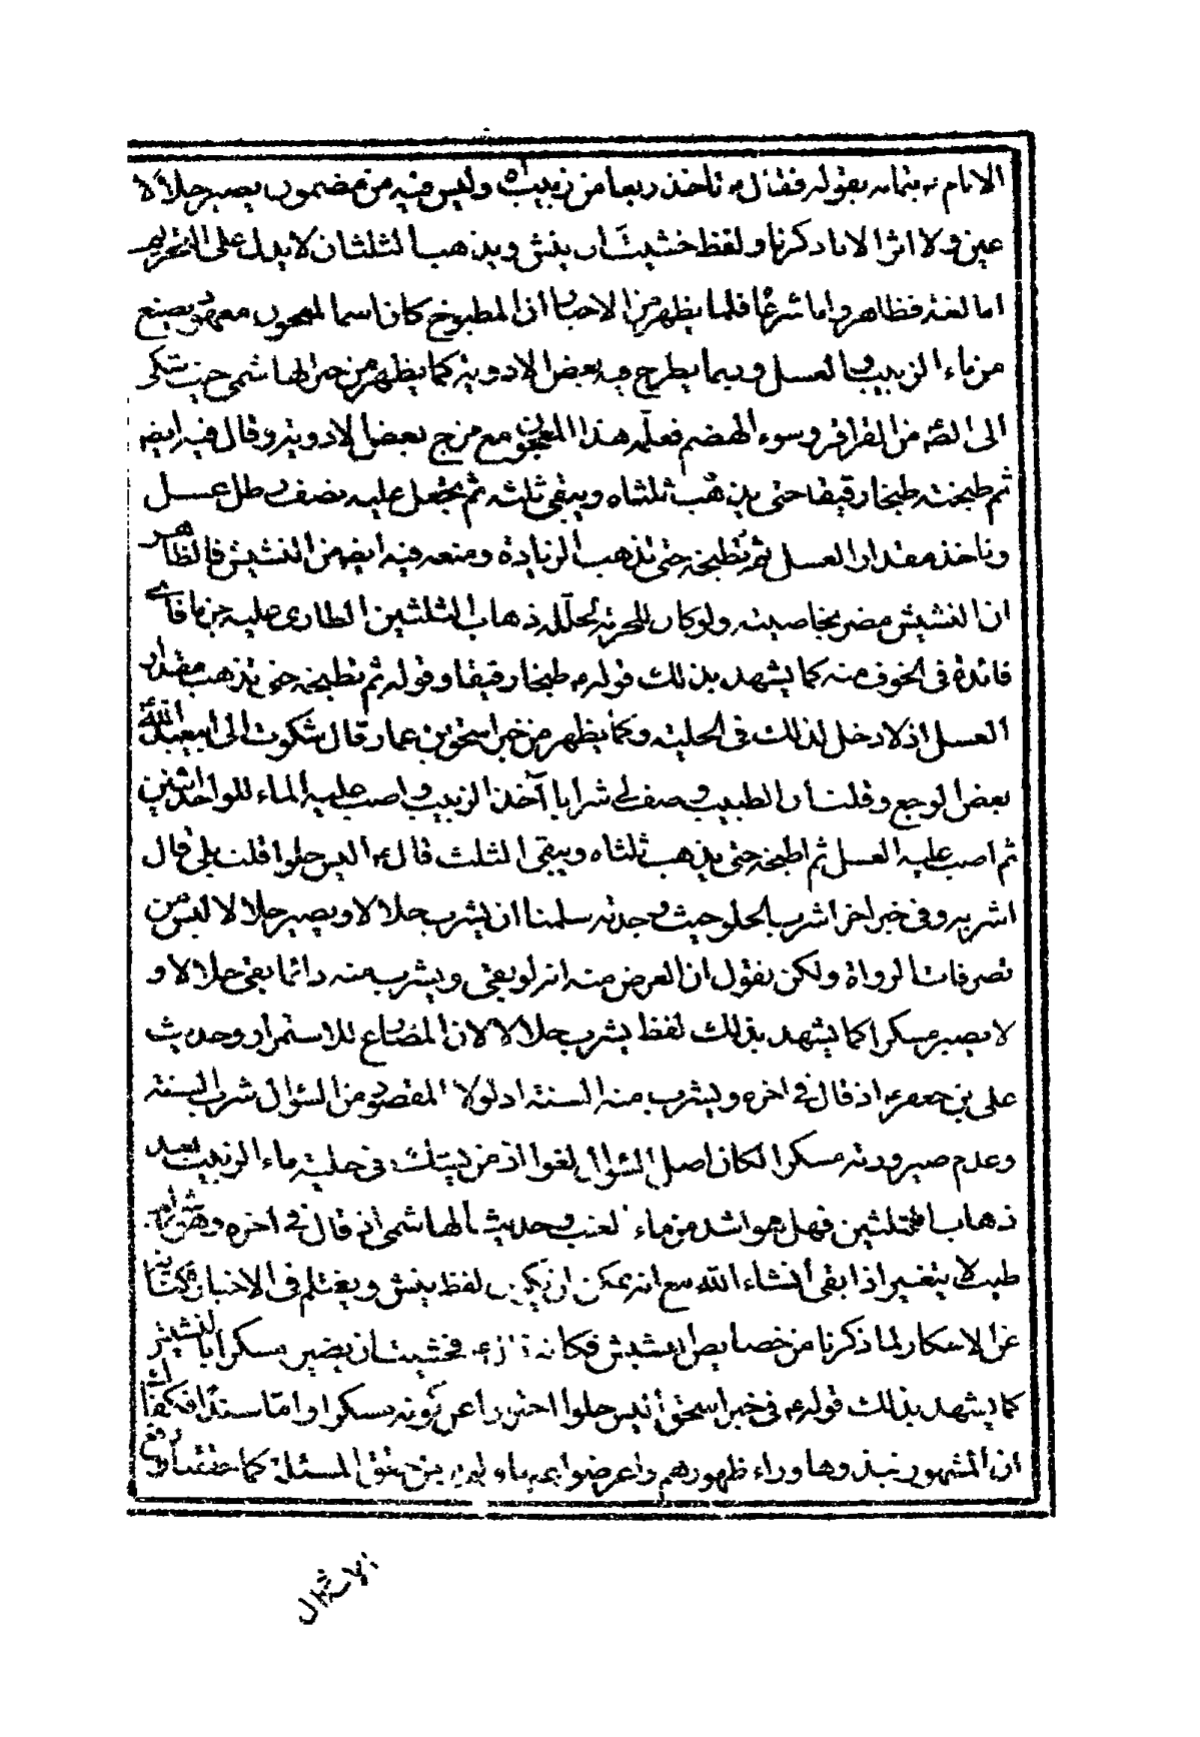 الامام ع بتمامه بقوله فقال ع تأخذ ربعا من زبيب اه وليس فيه من مضمون يصير حلالا لا
عين ولا اثر الا ما ذكرنا ولفظ خشيت ان ينش ويذهب الثلثان لا يدل على التحريم
اما لغة فظاهر واما شرعا فلما يظهر من الاخبار ان المطبوخ كان اسما لمعجون معهود يصنع
من ماء الزبيب والعسل وربما يطرح فيه بعض الادوية كما يظهر من خبر الهاشمي حيث شكى
الى الص من القراقر وسوء الهضم فعلمه هذا المعجون مع مزج بعض الادوية وقال فيه ايضه
ثم طبخته طبخا رقيقا حتى يذهب ثلثاه ويبقى ثلثه ثم يجعل عليه نصف رطل عسل
وتاخذ مقدار العسل ثم تطبخه حتى تذهب الزيادة ومنعه فيه ايضه من النشيش فالظاهر
ان النشيش مضر بخاصيته ولو كان للحرمة لحلله ذهاب الثلثين الطاري عليه
فائدة في الخوف منه كما يشهد بذلك قوله ع طبخا رقيقا وقوله ثم تطبخه حتى تذهب مقدار
العسل اذ لا دخل لذلك في الحلية وكما يظهر من خبر اسحق بن عمار قال شكوت الى ابيعبد الله
بعض الوجع وقلت ان الطبيب وصف لي شرابا آخذ الزبيب واصب عليه الماء للواحد اثنين
ثم اصب عليه العسل ثم اطبخه حتى يذهب ثلثاه ويبقى الثلث قال ع اليس حلوا قلت بلى قال
اشربه وفي خبر اخر اشرب الحلو حيث وجدته سلمنا ان يشرب حلالا او يصير حلالا ليس من
تصرفات الرواة ولكن نقول ان الغرض منه انه لو بقي ويشرب منه دائما بقي حلالا و
لا يصير مسكرا كما يشهد بذلك لفظ يشرب حلالا لان المضارع للاستمرار وحديث
علي بن جعفر ع اذ قال في اخره ويشرب منه السنة اذ لولا المقصود من السئوال شرب السنة
وعدم صيرورته مسكرا لكان اصل السئوال لغوا اذ من يشك في حلية ماء الزبيب بعد
ذهاب الثلثين فهل هو اشد من ماء العنب وحديث الهاشمي اذ قال في اخره وهو شراب
طيب لا يتغير اذا بقي انشاء الله مع انه يمكن ان يكون لفظ ينش ويغتلم في الاخبار كناية
عن الاسكار لما ذكرنا من خصايص النشيش فكانه قال ع فخشيت ان يصير مسكرا بالنشيش
كما يشهد بذلك قوله ع في خبر اسحق اليس حلوا احترازا عن كونه مسكرا واما سندا فكفاك
ان المشهور نبذوها وراء ظهورهم واعرضوا المسئلة كما حققنا
الاستدلال